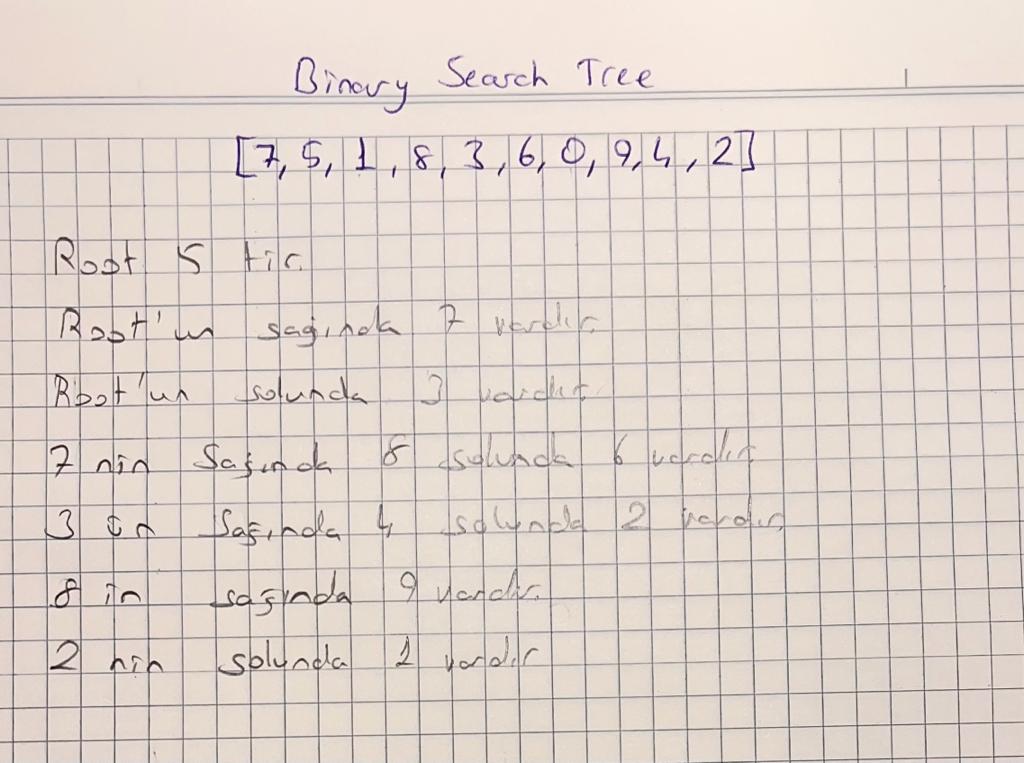 Binary Search Tree
[7, 5, 1, 8, 3, 6, 0, 9, 4, 2]
Root 5 tir.
Root'un sağında 7 vardır.
Root'un solunda 3 vardır.
7 nin Sağında 8 solunda 6 vardır
3 ün Sağında 4 solunda 2 vardır
8 in sağında 9 vardır.
2 nin solunda 1 vardır